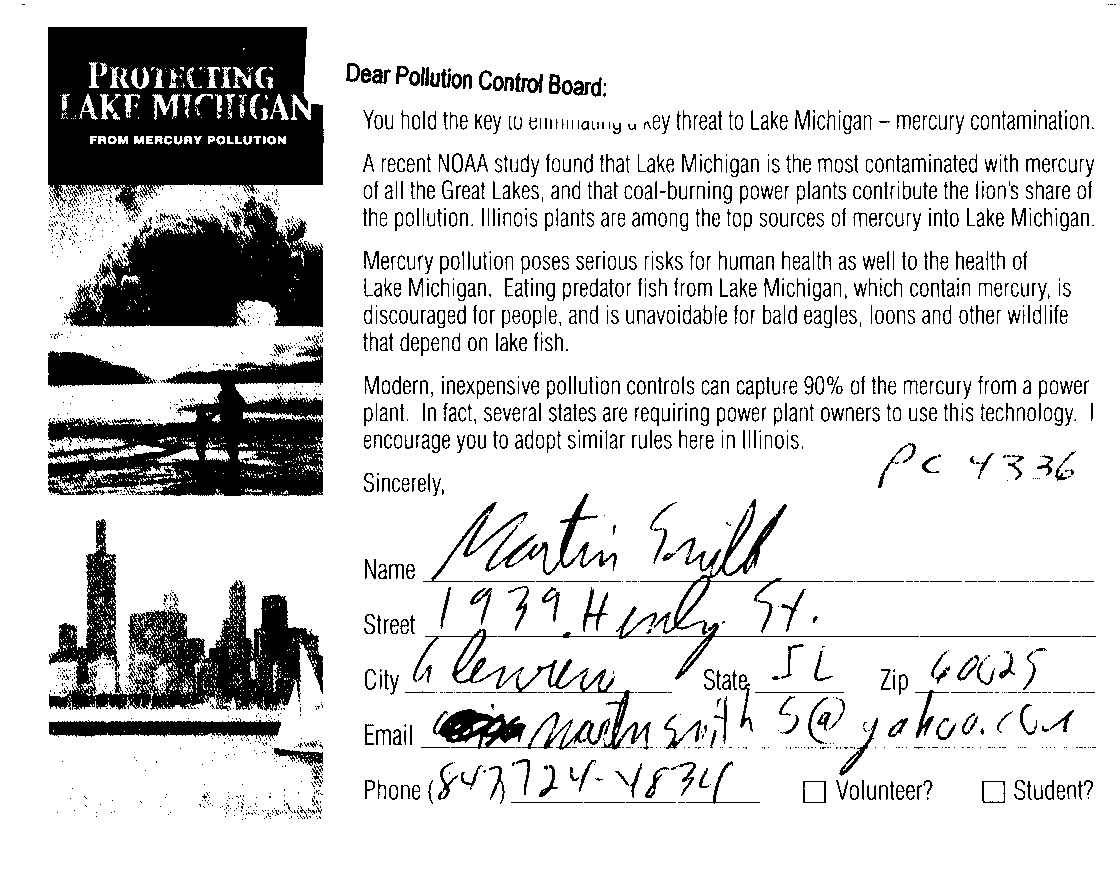 PROTECTING
LAKE MICHIGAN
FROM MERCURY POLLUTION
Dear Pollution Control Board:
You hold the key to eliminating a key threat to Lake Michigan – mercury contamination.
A recent NOAA study found that Lake Michigan is the most contaminated with mercury
of all the Great Lakes, and that coal-burning power plants contribute the lion's share of
the pollution. Illinois plants are among the top sources of mercury into Lake Michigan.
Mercury pollution poses serious risks for human health as well to the health of
Lake Michigan. Eating predator fish from Lake Michigan, which contain mercury, is
discouraged for people, and is unavoidable for bald eagles, loons and other wildlife
that depend on lake fish.
Modern, inexpensive pollution controls can capture 90% of the mercury from a power
plant. In fact, several states are requiring power plant owners to use this technology. I
encourage you to adopt similar rules here in Illinois.
PC 4336
Sincerely,
Name Martin Smith
Street 1939 Henly St.
City Glenview State IL Zip 60025
Email martin smith 5@yahoo.com
Phone (847) 724-4834 Volunteer? Student?